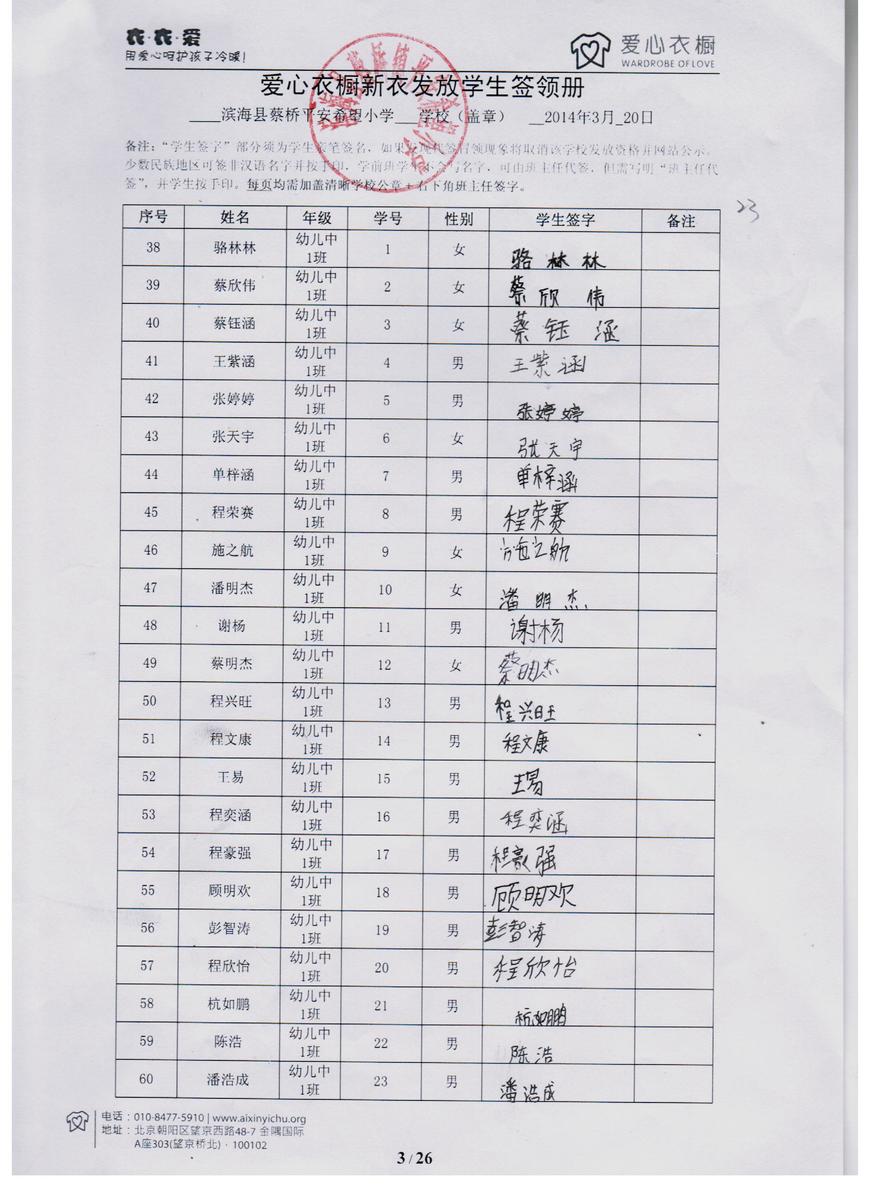 衣·衣·爱
用爱心呵护孩子冷暖!
爱心衣橱
WARDROBE OF LOVE
爱心衣橱新衣发放学生签领册
滨海县蔡桥平安希望小学 学校（盖章） 2014年3月_20日
备注：“学生签字”部分须为学生亲笔签名，如果发现代签冒领现象将取消该学校发放资格并网站公示。
少数民族地区可签非汉语名字并按手印，学前班学生不会写名字，可由班主任代签，但需写明“班主任代
签”，并学生按手印。每页均需加盖清晰学校公章+右下角班主任签字。
23
序号 姓名 年级 学号 性别 学生签字 备注
38 骆林林 幼儿中1班 1 女 骆林林
39 蔡欣伟 幼儿中1班 2 女 蔡欣伟
40 蔡钰涵 幼儿中1班 3 女 蔡钰涵
41 王紫涵 幼儿中1班 4 男 王紫涵
42 张婷婷 幼儿中1班 5 男 张婷婷
43 张天宇 幼儿中1班 6 女 张天宇
44 单梓涵 幼儿中1班 7 男 单梓涵
45 程荣赛 幼儿中1班 8 男 程荣赛
46 施之航 幼儿中1班 9 女 施之航
47 潘明杰 幼儿中1班 10 女 潘明杰
48 谢杨 幼儿中1班 11 男 谢杨
49 蔡明杰 幼儿中1班 12 女 蔡明杰
50 程兴旺 幼儿中1班 13 男 程兴旺
51 程文康 幼儿中1班 14 男 程文康
52 王易 幼儿中1班 15 男 王易
53 程奕涵 幼儿中1班 16 男 程奕涵
54 程豪强 幼儿中1班 17 男 程豪强
55 顾明欢 幼儿中1班 18 男 顾明欢
56 彭智涛 幼儿中1班 19 男 彭智涛
57 程欣怡 幼儿中1班 20 男 程欣怡
58 杭如鹏 幼儿中1班 21 男 杭如鹏
59 陈浩 幼儿中1班 22 男 陈浩
60 潘浩成 幼儿中1班 23 男 潘浩成
电话：010-8477-5910 | www.aixinyichu.org
地址：北京朝阳区望京西路48-7 金隅国际
A座303(望京桥北)·100102
3 / 26